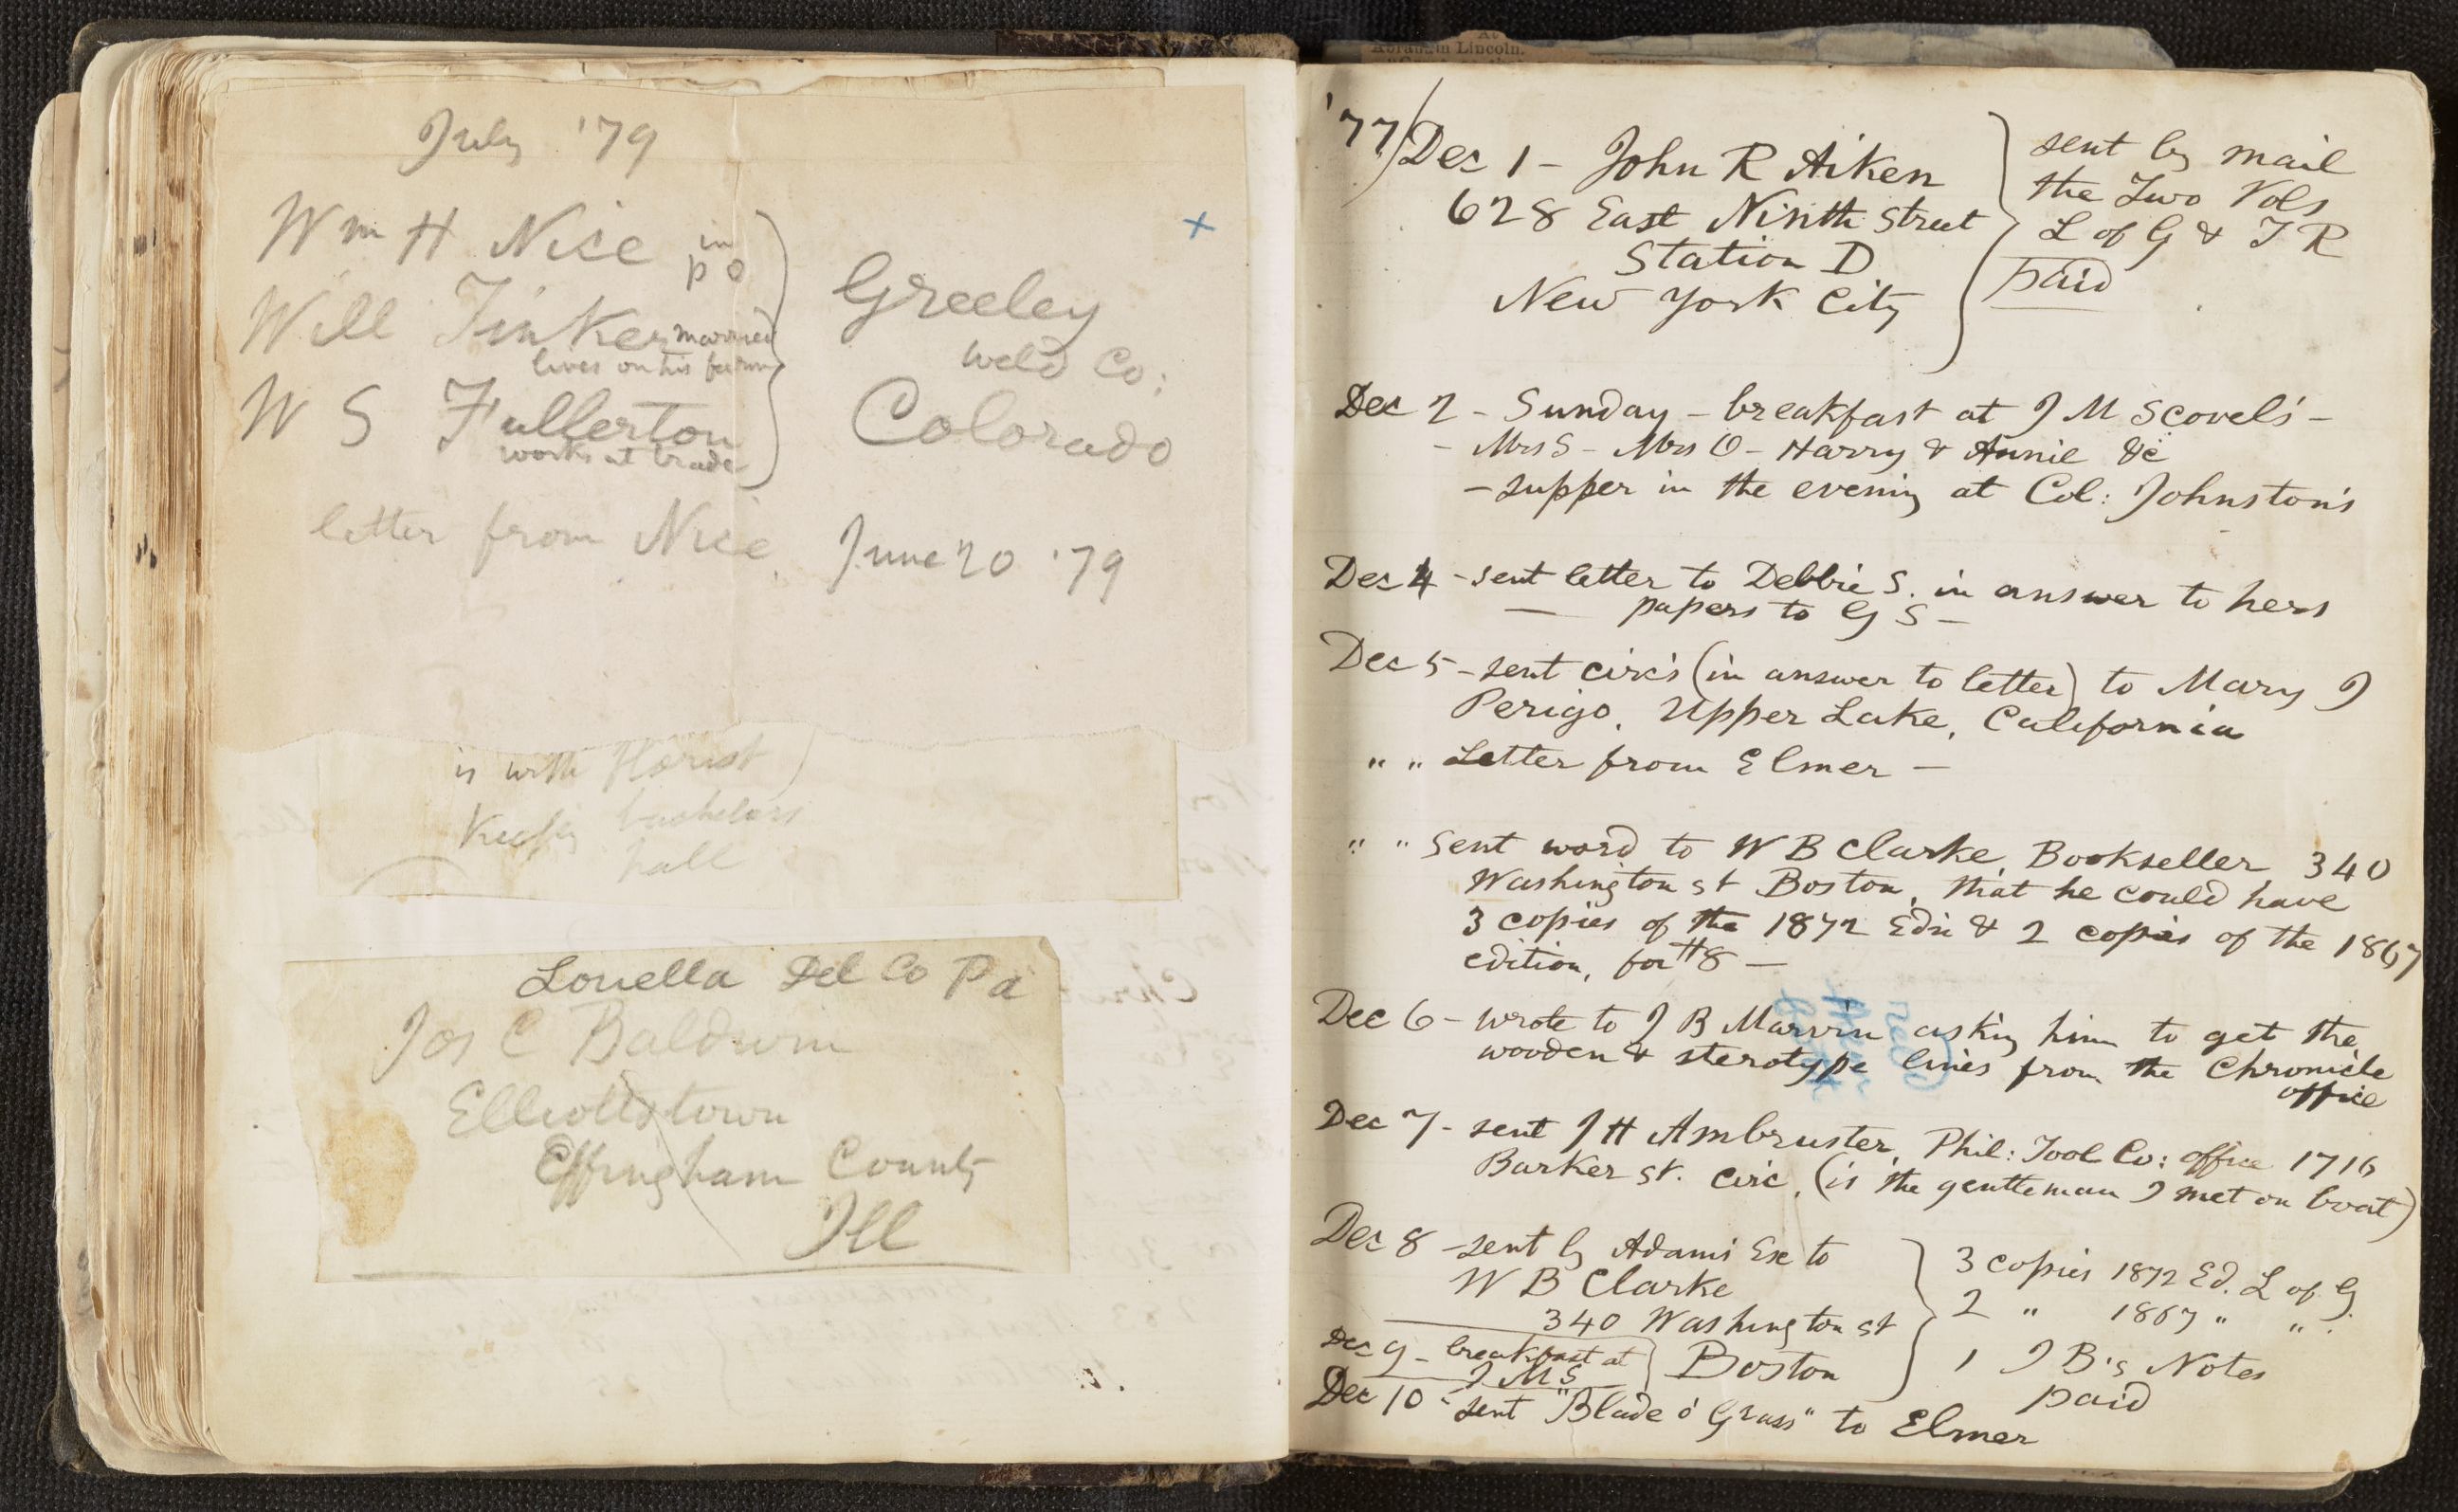 July '79
Wm H Nice in
p o
Will Tinker married
lives on his farm
W S Fullerton
works at trade
Greeley
Weld Co:
Colorado
letter from Nice, June 20 '79
+
is with florist)
Keeps bachelors
hall
Louella Del Co Pa
Jos C Baldwin
Elliottstown
Effingham County
Ill
Abraham Lincoln.
'77) Dec 1 – John R Aiken
628 East Ninth Street
Station D
New York City
sent by mail
the Two Vols
L of G & T R
paid
Dec 2 – Sunday – breakfast at J M Scovel's –
– Mrs S – Mrs O – Harry & Annie &c
– supper in the evening at Col: Johnston's
Dec 4 – sent letter to Debbie S. in answer to hers
— papers to G S –
Dec 5 – sent circ's (in answer to letter) to Mary J
Perigo, Upper Lake, California
" " Letter from Elmer –
" " sent word to W B Clarke, Bookseller, 340
Washington st Boston, that he could have
3 copies of the 1872 Edn & 2 copies of the 1867
edition, for $18 —
Dec 6 – wrote to J B Marvin asking him to get the
wooden & sterotype lines from the Chronicle
office
Dec 7 – sent J H Ambruster, Phil: Tool Co: office 1716
Barker st. circ, (is the gentleman I met on boat)
Dec 8 – sent by Adams Ex to
W B Clarke
340 Washington st
Boston
3 copies 1872 Ed. L of G.
2 " 1867 " " .
1 J B's Notes
paid
Dec 9 – breakfast at
J M S
Dec 10 – sent "Blade o' Grass" to Elmer